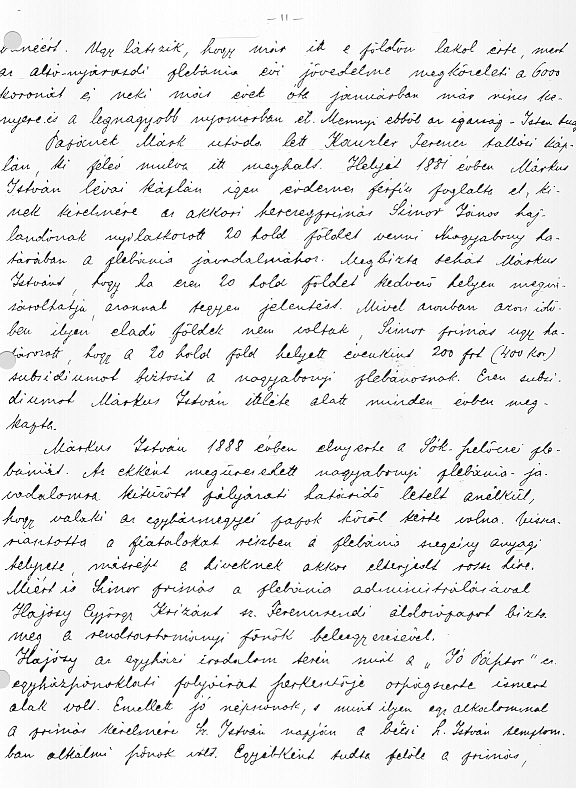 - 11 -
Ugy látszik, hogy már itt e földön lakol érte, mert
az alsó-nyárasdi plebánia évi jövedelme megközeliti a 6000
koronát és neki más évet óta januárban már nincs ke-
nyere és a legnagyobb nyomorban él. Mennyi ebből az igazság - Isten tud
Márk utóda lett Kanzler Ferenc tallósi káp-
lán, ki félév mulva itt meghalt. Helyét 1881 évben Márkus
István lévai káplán igen érdemes férfiu foglalta el, ki-
nek kérelmére az akkori hercegprimás Simor János haj-
landónak nyilatkozott 20 hold földet venni Nagyabony ha-
tárában a plebánia javadalmához. Megbizta tehát Márkus
Istvánt, hogy ha ezen 20 hold földet kedvező helyen megvá-
sárolhatja, azonnal tegyen jelentést. Mivel azonban azon idő-
ben ilyen eladó földek nem voltak, Simor primás ugy ha-
tározott, hogy a 20 hold föld helyett évenkint 200 frt (400 kor)
subsidiumot biztosit a nagyabonyi plebánosnak. Ezen subsi-
diumot Márkus István ittléte alatt minden évben meg-
kapta.
Márkus István 1888 évben elnyerte a Sók-szelőcei ple-
bániát. Az ekként megüresedett nagyabonyi plebánia-ja-
vadalomra kitüzött pályázati határidő letelt anélkül,
hogy valaki az egyházmegyei papok közöl kérte volna. Vissza-
riasztotta a fiatalokat részben a plebánia szegény anyagi
helyzete, másrészt a hiveknek akkor elterjedt rossz hire.
Miért is Simor primás a plebánia administrálásával
Hajósy György Krizánt sz. Ferencrendi áldozópapot bizta
meg a rendtartományi főnök beleegyezésével.
Hajósy az egyházi irodalom terén mint a „Jó Pásztor" c.
egyházszónoklati folyóirat szerkesztője országszerte ismert
alak volt. Emellett jó népszónok, s mint ilyen egy alkalommal
a primás kérelmére Sz. István napján a bécsi Sz. István templom-
ban alkalmi szónok volt. Egyébként tudta felőle a primás,